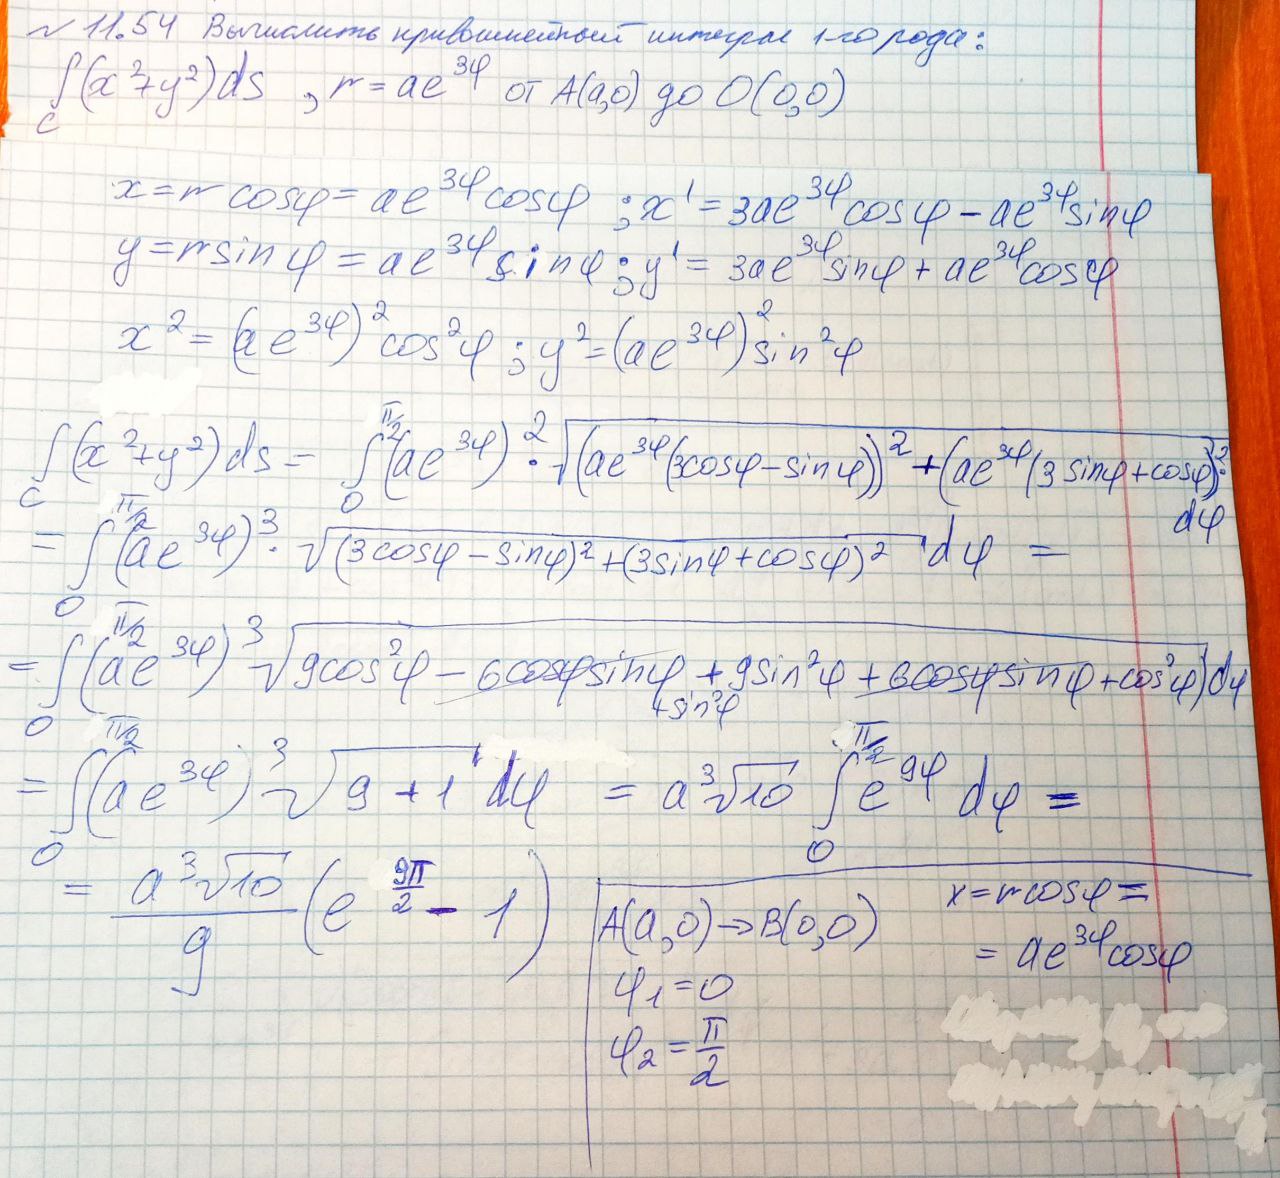 √ 11.54 Вычислить криволинейный интеграл 1-го рода:
∫_C (x²+y²)ds , r = ae^{3φ} от A(a,0) до O(0,0)
x = r cosφ = ae^{3φ}cosφ ; x' = 3ae^{3φ}cosφ − ae^{3φ}sinφ
y = r sinφ = ae^{3φ}sinφ ; y' = 3ae^{3φ}sinφ + ae^{3φ}cosφ
x² = (ae^{3φ})² cos²φ ; y² = (ae^{3φ})² sin²φ
∫_C (x²+y²)ds = ∫_0^{π/2} (ae^{3φ})² · √((ae^{3φ}(3cosφ − sinφ))² + (ae^{3φ}(3sinφ + cosφ))² · dφ
= ∫_0^{π/2} (ae^{3φ})³ · √((3cosφ − sinφ)² + (3sinφ + cosφ)²) dφ =
= ∫_0^{π/2} (ae^{3φ})³ √(9cos²φ − 6cosφsinφ + sin²φ + 9sin²φ + 6cosφsinφ + cos²φ) dφ
= ∫_0^{π/2} (ae^{3φ})³ √(9+1) dφ = a³√10 ∫_0^{π/2} e^{9φ} dφ =
= a³√10/9 (e^{9π/2} − 1)
A(a,0) → B(0,0)
φ₁ = 0
φ₂ = π/2
x = r cosφ =
= ae^{3φ}cosφ